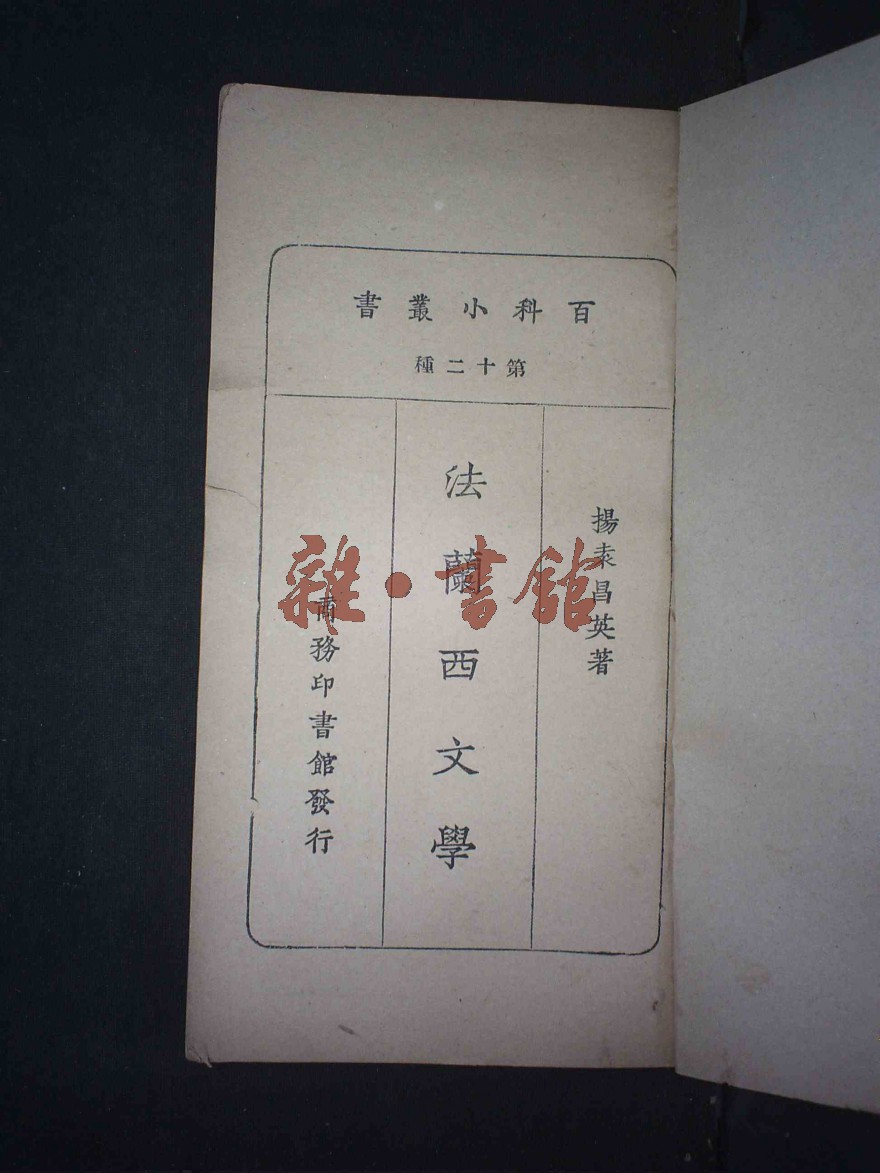 百科小叢書
第十二種
揚袁昌英著
法蘭西文學
商務印書館發行
雜·書館